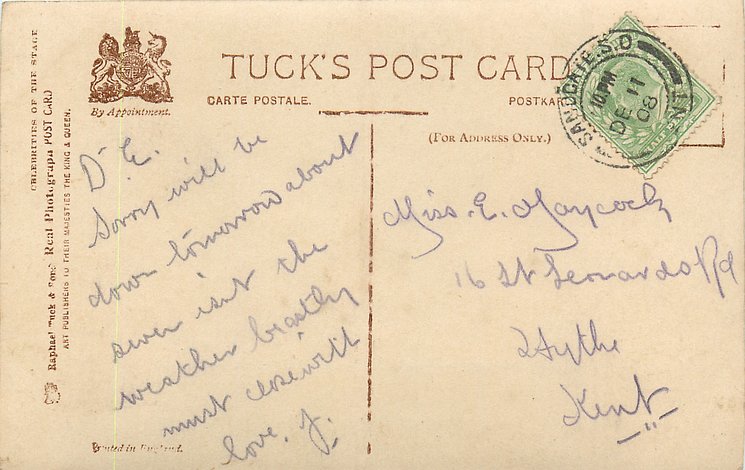 TUCK'S POST CARD
CARTE POSTALE.
POSTKAR
By Appointment.
(FOR ADDRESS ONLY.)
CELEBRITIES OF THE STAGE
Raphael Tuck & Sons' Real Photograph POST CARD
ART PUBLISHERS TO THEIR MAJESTIES THE KING & QUEEN.
SANDGATE S.O.
KENT
10 PM
DE 11
08
D E.
Sorry will be
down tomorrow about
seven isn't the
weather beastly
must close with
love. J.
Miss. E. Maycock
16 St Leonards Rd
Hythe
Kent
Printed in England.